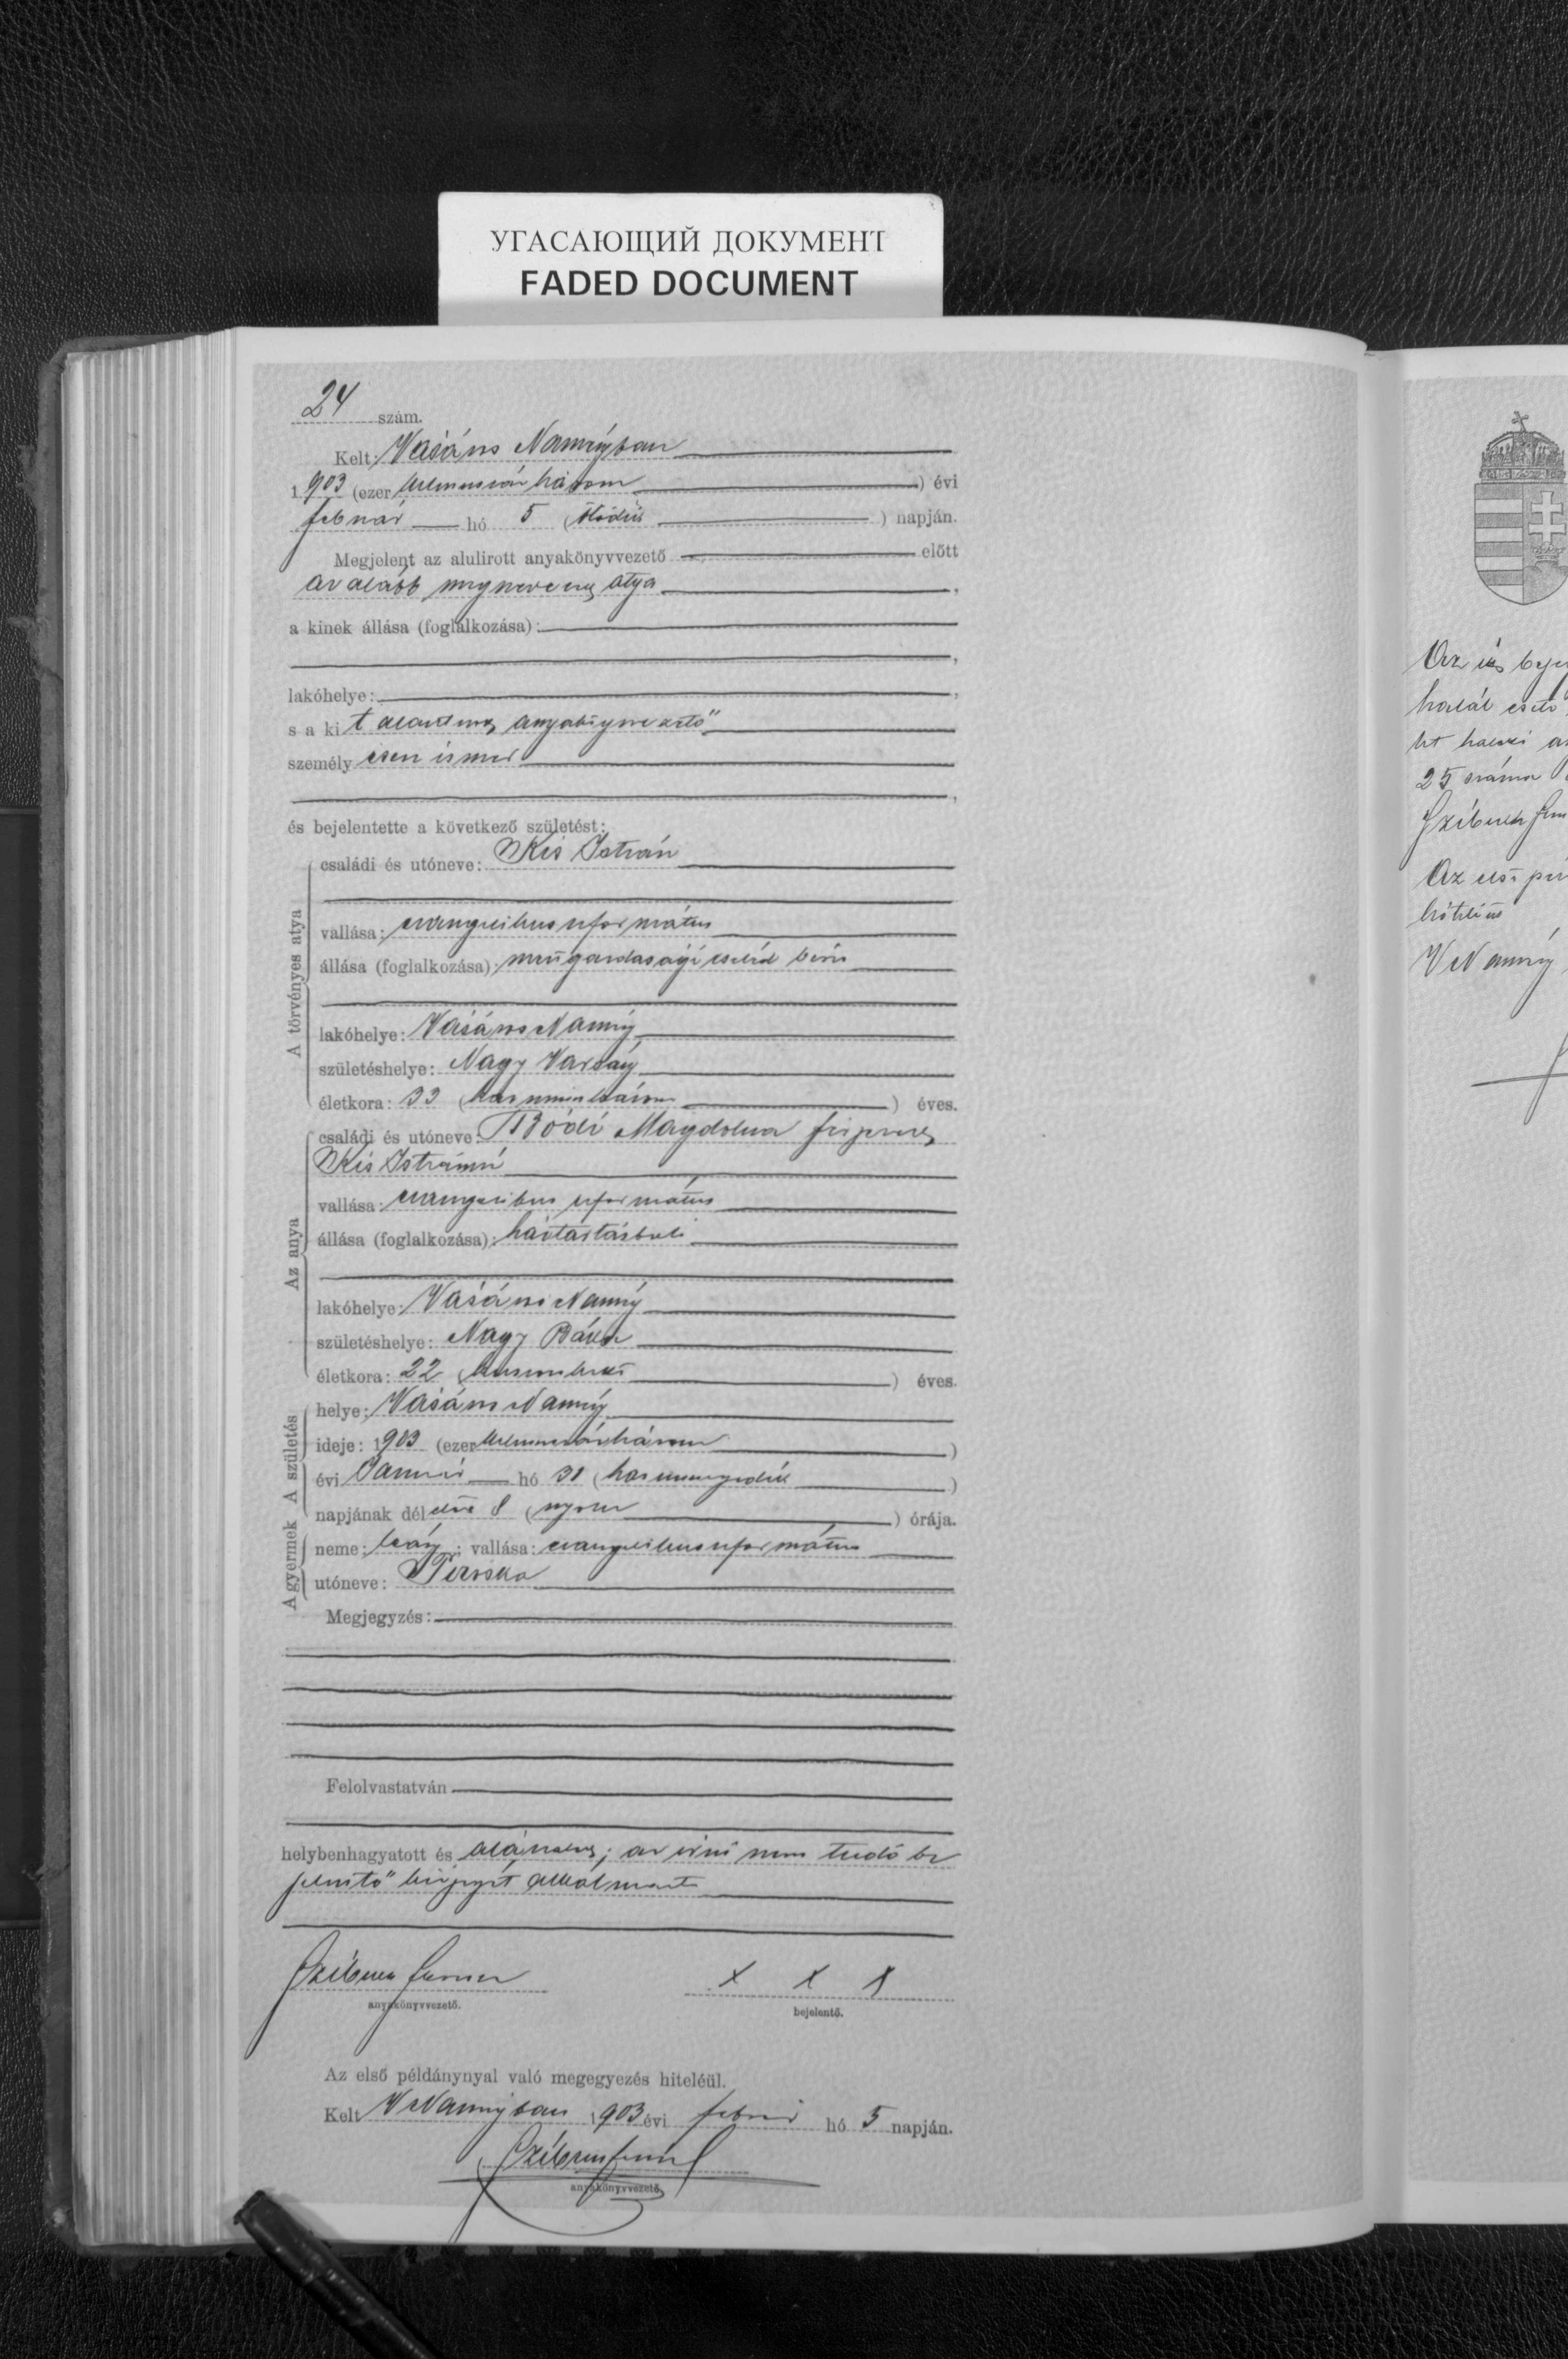 УГАСАЮЩИЙ ДОКУМЕНТ
FADED DOCUMENT
24 szám.
Kelt: Vásáros Naményban
1903 (ezer kilenczszázhárom) évi
február hó 5 (ötödik) napján.
Megjelent az alulirott anyakönyvvezető előtt
az alább megnevezett atya,
a kinek állása (foglalkozása):
,
lakóhelye: ,
s a kit anyakönyvvezető
személyesen ismer
,
és bejelentette a következő születést:
A törvényes atya
családi és utóneve: Kis István
vallása: evangelikus református
állása (foglalkozása): mezőgazdasági cseléd béres
lakóhelye: Vásáros Namény
születéshelye: Nagy Varsány
életkora: 33 (harminczhárom) éves.
Az anya
családi és utóneve: Bódi Magdolna férjezett
Kis Istvánné
vallása: evangelikus református
állása (foglalkozása): háztartásbeli
lakóhelye: Vásáros Namény
születéshelye: Nagy
életkora: 22 (huszonkettő) éves.
A születés
helye: Vásáros Namény
ideje: 1903 (ezer kilenczszázhárom)
évi Január hó (
napjának délelőtt 8 (nyolcz) órája.
A gyermek
neme: leány; vallása: evangelikus református
utóneve: Piroska
Megjegyzés:
Felolvastatván
helybenhagyatott és aláíratott; az írni nem tudó be
jelentő kézjegyét alkalmazta
x x x
anyakönyvvezető. bejelentő.
Az első példánynyal való megegyezés hiteléül.
Kelt V Naményban 1903 évi február hó 5 napján.
anyakönyvvezető.
Az
halál
25 száma
Az első
hiteléül
V Namény